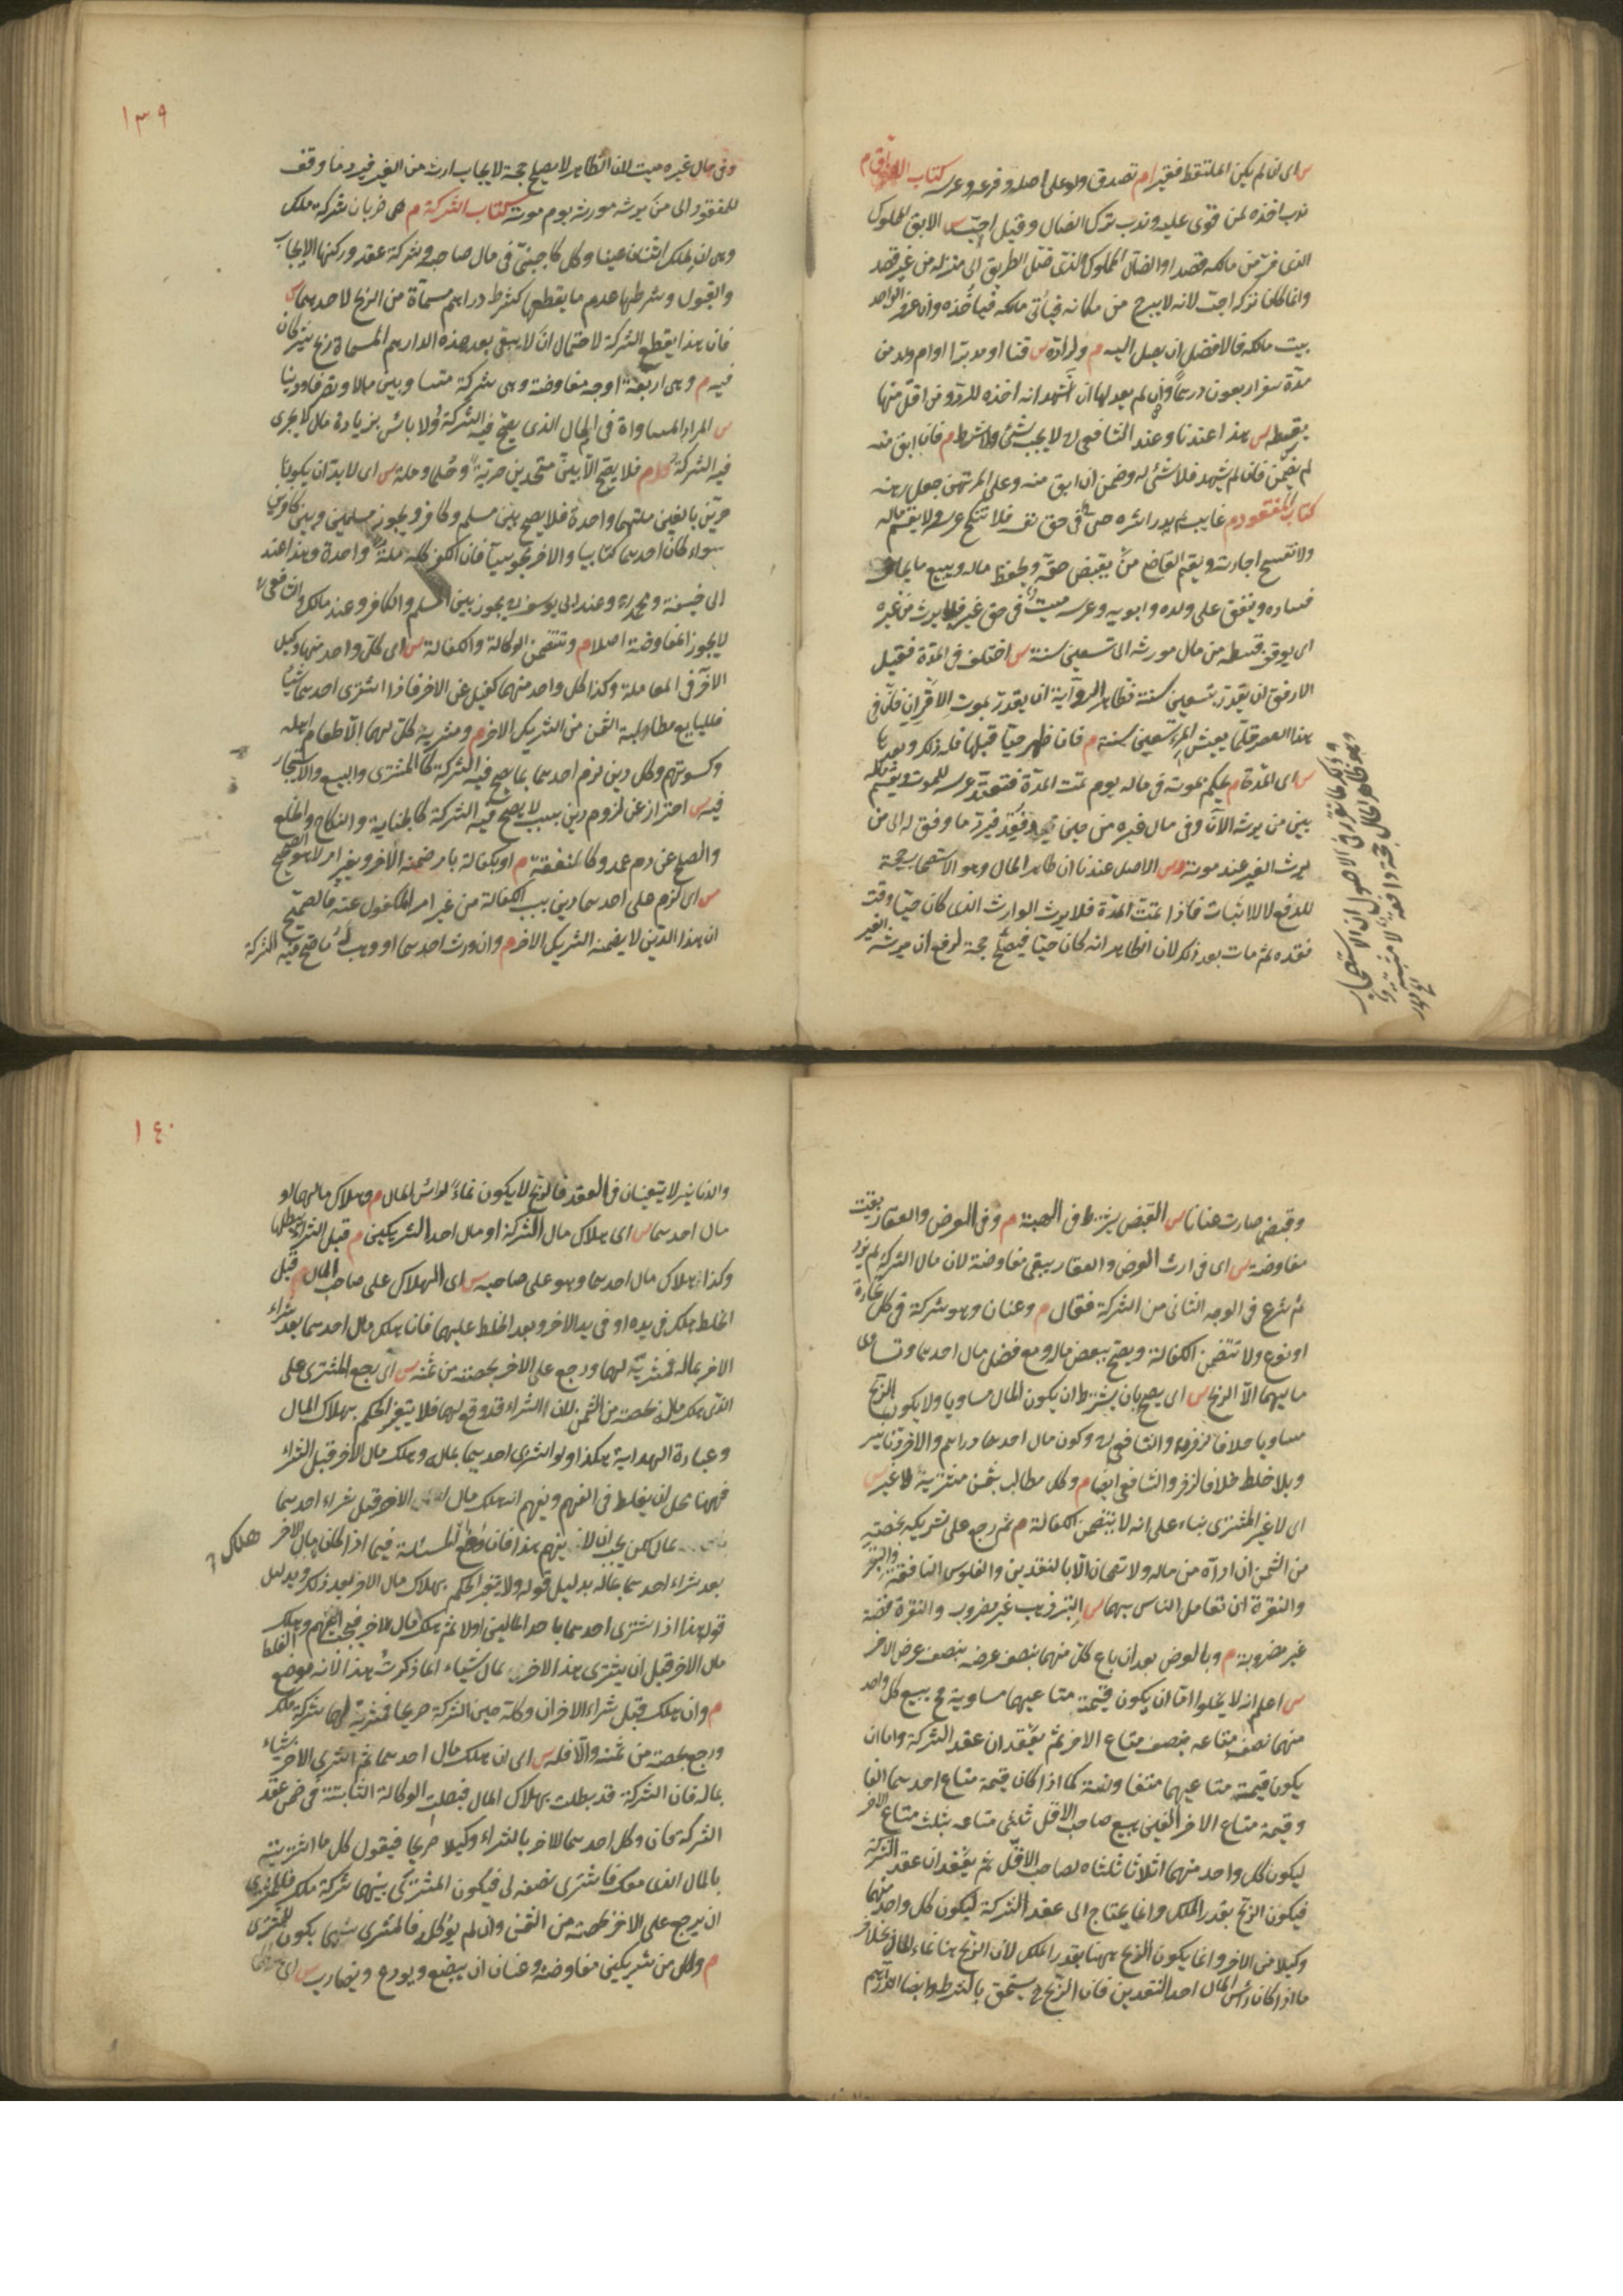 س اى ان لم يكن الملتقط فقيرا م تصدق ولو على اصله وفرعه وعرسه كتاب الاباق م
ندب اخذه لمن قوى عليه وندب ترك الضال وقيل احب س الابق المملوك
الذى فر من مالكه قصدا والضال المملوك الذى ضل الطريق الى منزله من غير قصد
وانما كان تركه احب لانه لا يبرح من مكانه فيأتى مالكه فيأخذه وان عرف الواجد
بيت مالكه فالافضل ان يوصل اليه م ولراده س قنا او مدبرا او ام ولد من
مدة سفر اربعون درهما وان لم يعدلها ان اشهد انه اخذه للرد ومن اقل منها
بقسطه س هذا عندنا وعند الشافعى لا يجب شئ الا بشرط م فان ابق منه
لم يضمن فان لم يشهد فلا شئ له وضمن ان ابق منه وعلى المرتهن جعل رهنه
كتاب المفقود م غايب لم يدر اثره حى فى حق نفسه فلا تنكح عرسه ولا يقسم ماله
ولا تفسخ اجارته ويقيم القاضى من يقبض حقه ويحفظ ماله ويبيع ما يخاف
فساده وينفق على ولده وابويه وعرسه ميت فى حق غيره فلا يرث من غيره
اى يوقف قسطه من مال مورثه الى تسعين سنة س اختلف فى المدة فقيل
الارفق ان يقدر بتسعين سنة فظاهر الرواية ان يقدر بموت الاقران فان فى
هذا العصر قلما يعيش المرء تسعين سنة م فان ظهر حيا قبلها فله ذلك وبعدها
س اى المدة م يحكم بموته فى ماله يوم تمت المدة فتعتد عرسه للموت ويقسم ماله
بين من يرثه الآن وفى مال غيره من حين فقد فيرد ما وقف له الى من
يرث الغير عند موته س الاصل عندنا ان ظاهر الحال وهو الاستصحاب حجة
للدفع لا للاثبات فاذا تمت المدة فلا يرث الوارث الذى كان حيا وقت
فقده ثم مات بعد ذلك لان الظاهر انه كان حيا فيصلح حجة لدفع ان يرثه الغير
وفى مال غيره ميت لان الظاهر لا يصلح حجة لايجاب ارثه من الغير فيرد ما وقف
للمفقود الى من يرث مورثه يوم موته كتاب الشركة م هى ضربان شركة ملك
وهى ان يملك اثنان عينا وكل كاجنبى فى مال صاحبه وشركة عقد وركنها الايجاب
والقبول وشرطها عدم ما يقطعها كشرط دراهم مسماة من الربح لاحدهما س
فان هذا يقطع الشركة لاحتمال ان لا يبقى بعد هذه الدراهم المسماة ربح يشتركان
فيه م وهى اربعة اوجه مفاوضة وهى شركة متساويين مالا وتصرفا ودينا
س المراد المساواة فى المال الذى يصح فيه الشركة ولا بأس بزيادة مال لا يجرى
فيه الشركة م فلا يصح الا بين متحدين حرية وحلما وملة س اى لا بد ان يكونا
حرين بالغين ملتهما واحدة فلا يصح بين مسلم وكافر ويجوز بين مسلمين وبين كافرين
سواء كان احدهما كتابيا والاخر مجوسيا فان الكفر كله ملة واحدة وهذا عند
ابى حنيفة ومحمد وعند ابى يوسف يجوز بين المسلم والكافر وعند مالك والشافعى
لا يجوز المفاوضة اصلا م وتتضمن الوكالة والكفالة س اى كل واحد منهما وكيل
الاخر فى المعاملة وكذا كل واحد منهما كفيل عن الاخر فاذا اشترى احدهما شيئا
فللبايع مطالبة الثمن من الشريك الاخر م ومشرية كل لهما الا طعام اهله
وكسوتهم وكل دين لزم احدهما بما يصح فيه الشركة كالمشترى والبيع والاستيجار
فيه س احتراز عن لزوم دين بسبب لا يصح فيه الشركة كالجناية والنكاح والخلع
والصلح عن دم عمد وكالنفقة م او بكفالة بامر ضمنه الاخر وبغير امر لا هو الصحيح
س اى لزم على احدهما دين بسبب الكفالة من غير امر المكفول عنه فالصحيح
ان هذا الدين لا يضمنه الشريك الاخر م وان ورث احدهما او وهب له ما صح فيه الشركة
وقبض صارت عنانا س القبض يشترط فى الهبة م وفى العرض والعقار بقيت
مفاوضة س اى فى ارث العرض والعقار يبقى مفاوضة لان مال الشركة لم يزد
ثم شرع فى الوجه الثانى من الشركة فقال م وعنان وهو شركة فى كل تجارة
او نوع ولا تتضمن الكفالة ويصح ببعض ماله ومع فضل مال احدهما وتساوى
ماليهما لا الربح س اى يصح بان يشترط ان يكون المال مساويا ولا يكون الربح
مساويا خلافا لزفر والشافعى وكون مال احدهما دراهم والاخر دنانير
وبلا خلط خلافا لزفر والشافعى ايضا م وكل مطالب بثمن مشتريه لا غير س
اى لا غير المشترى بناء على انه لا يتضمن الكفالة م ثم رجع على شريكه بحصته
من الثمن ان اداه من ماله ولا تصحان الا بالنقدين والفلوس النافقة والتبر
والنقرة ان تعامل الناس بهما س التبر ذهب غير مضروب والنقرة فضة
غير مضروبة م وبالعرض بعد ان باع كل منهما بنصف عرضه بنصف عرض الاخر
س اعلم انه لا يخلو اما ان يكون قيمة متاعيهما مساوية فح يبيع كل واحد
منهما نصف متاعه بنصف متاع الاخر ثم يعقدان عقد الشركة واما ان
يكون قيمة متاعيهما متفاوتة كما اذا كان قيمة متاع احدهما الفا
وقيمة متاع الاخر الفين يبيع صاحب الاقل ثلثى متاعه بثلث متاع الاخر
ليكون كل واحد منهما اثلاثا ثلثاه لصاحب الاقل ثم يعقدان عقد الشركة
فيكون الربح بقدر الملك وانما يحتاج الى عقد الشركة ليكون كل واحد منهما
وكيلا من الاخر وانما يكون الربح ههنا بقدر الملك لان الربح هنا نماء المال بخلاف
ما اذا كان رأس المال احد النقدين فان الربح ح يستحق بالشرط وايضا الدراهم
والدنانير لا يتعينان فى العقد فالربح لا يكون نماء لرأس المال م وهلاك ماليهما او
مال احدهما س اى هلاك مال الشركة او مال احد الشريكين م قبل الشراء يبطلها
وكذا هلاك مال احدهما وهو على صاحبه س اى الهلاك على صاحب المال م قبل
الخلط هلك فى يده او فى يد الاخر وبعد الخلط عليهما فان هلك مال احدهما بعد شراء
الاخر بماله فمشريه لهما ورجع على الاخر بحصته من ثمنه س اى رجع المشترى على
الذى هلك ماله بحصته من الثمن لان الشراء قد وقع لهما فلا يتغير الحكم بهلاك المال
وعبارة الهداية هكذا ولو اشترى احدهما بماله وهلك مال الاخر قبل الشراء
فههنا محل ان يغلط فى الفهم ويفهم انه هلك مال الاخر قبل شراء احدهما
بماله لكن يجب ان لا يفهم هذا فان وضع المسئلة فيما اذا هلك مال الاخر
بعد شراء احدهما بماله بدليل قوله ولا يتغير الحكم بهلاك مال الاخر بعد ذلك وبدليل
قوله هذا اذا اشترى احدهما باحد المالين اولا ثم هلك مال الاخر فيجب ان يفهم وهلك
مال الاخر قبل ان يشترى هذا الاخر بماله شيئا انما ذكرت هذا لانه موضع الغلط
م وان هلك قبل شراء الاخر ان وكله حين الشركة صريحا فمشريه لهما شركة ملك
ورجع بحصته من ثمنه والا فله س اى ان هلك مال احدهما ثم اشترى الاخر شيئا
بماله فان الشركة قد بطلت بهلاك المال فبطلت الوكالة الثابتة فى ضمن عقد
الشركة فان وكل احدهما الاخر بالشراء وكيلا صريحا فيقول كل ما اشتريته
بالمال الذى معك فاشترى نصفه لى فيكون المشترى بينهما شركة ملك فللمشترى
ان يرجع على الاخر بحصته من الثمن وان لم يوكل فالمشرى يكون للمشترى
م ولكل من شريكى مفاوضة وعنان ان يبضع ويودع ويضارب س اى
١٣٩
١٤٠